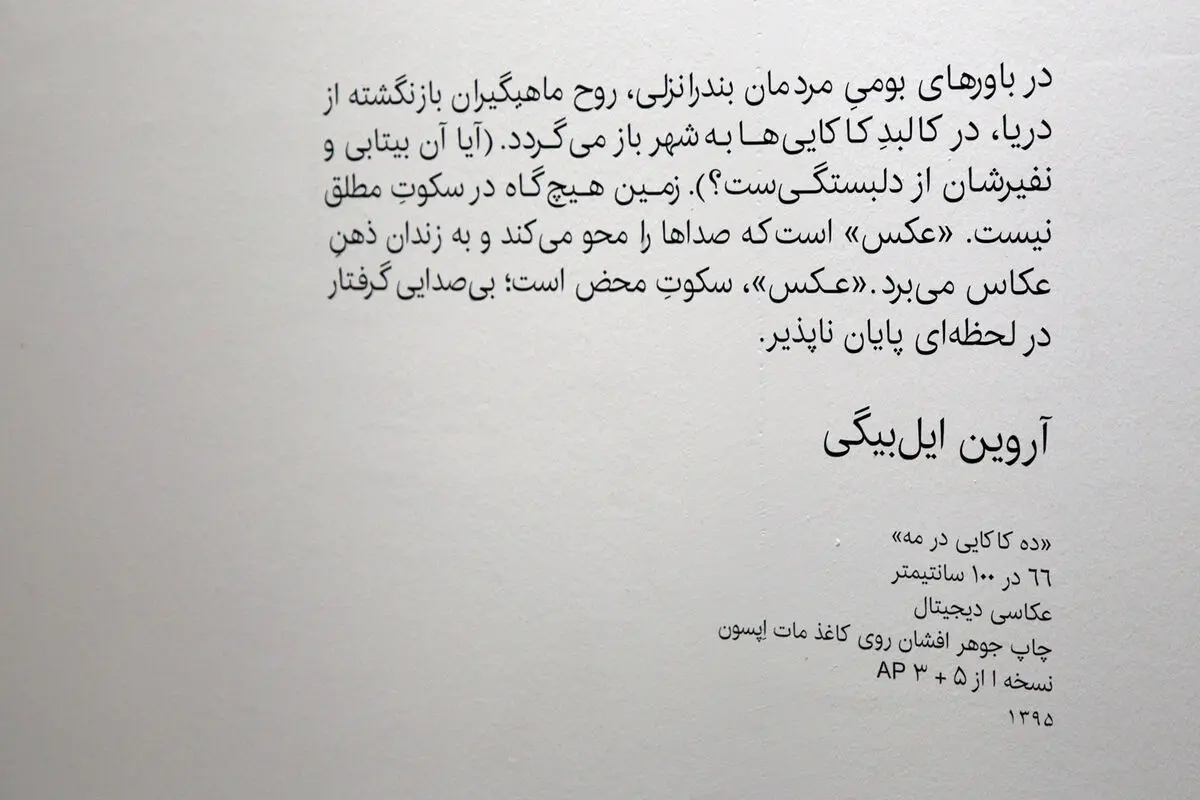 در باورهای بومیِ مردمان بندرانزلی، روح ماهیگیران بازنگشته از
دریا، در کالبدِ کاکایی‌هـا بـه شهر باز می‌گـردد. (آیا آن بیتابی و
نفیرشـان از دلبستگـی‌ست؟). زمـین هـیچ‌گاه در سکوتِ مطلق
نیست. «عکس» است‌که صداها را محو می‌کند و به زندان ذهنِ
عکاس می‌برد.«عـکس»، سکوتِ محض است؛ بی‌صدایی گرفتار
در لحظه‌ای پایان ناپذیر.
آروین ایل‌بیگی
«ده کاکایی در مه»
٦٦ در ۱۰۰ سانتیمتر
عکاسی دیجیتال
چاپ جوهر افشان روی کاغذ مات اِپسون
نسخه ۱ از ۵ + ۳ AP
۱۳۹۵